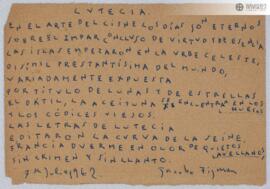 LUTECIA.
EN EL ARTE DEL CISNE LOS DÍAS SON ETERNOS
SOBRE EL IMPAR CONCLUSO DE VIRTUD SERENA
LAS ISLAS EMPEZARON EN LA URBE CELESTE,
DISIMIL PRESTANTÍSIMA DEL MUNDO,
VARIADAMENTE EXPUESTA
POR TITULO DE LUNAS Y DE ESTRELLAS
EL DÁTIL, LA ACEITUNA SE ENCUENTRA EN LOS HUESOS
Y LOS CÓDICES VIEJOS.
LAS LETRAS DE LUTECIA
EDITARON LA CURVA DE LA SEINE.
FRANCIA DUERME EN OLOR DE QUIETOS AVELLANOS
SIN CRIMEN Y SIN LLANTO.
1962 Jacobo Fijman